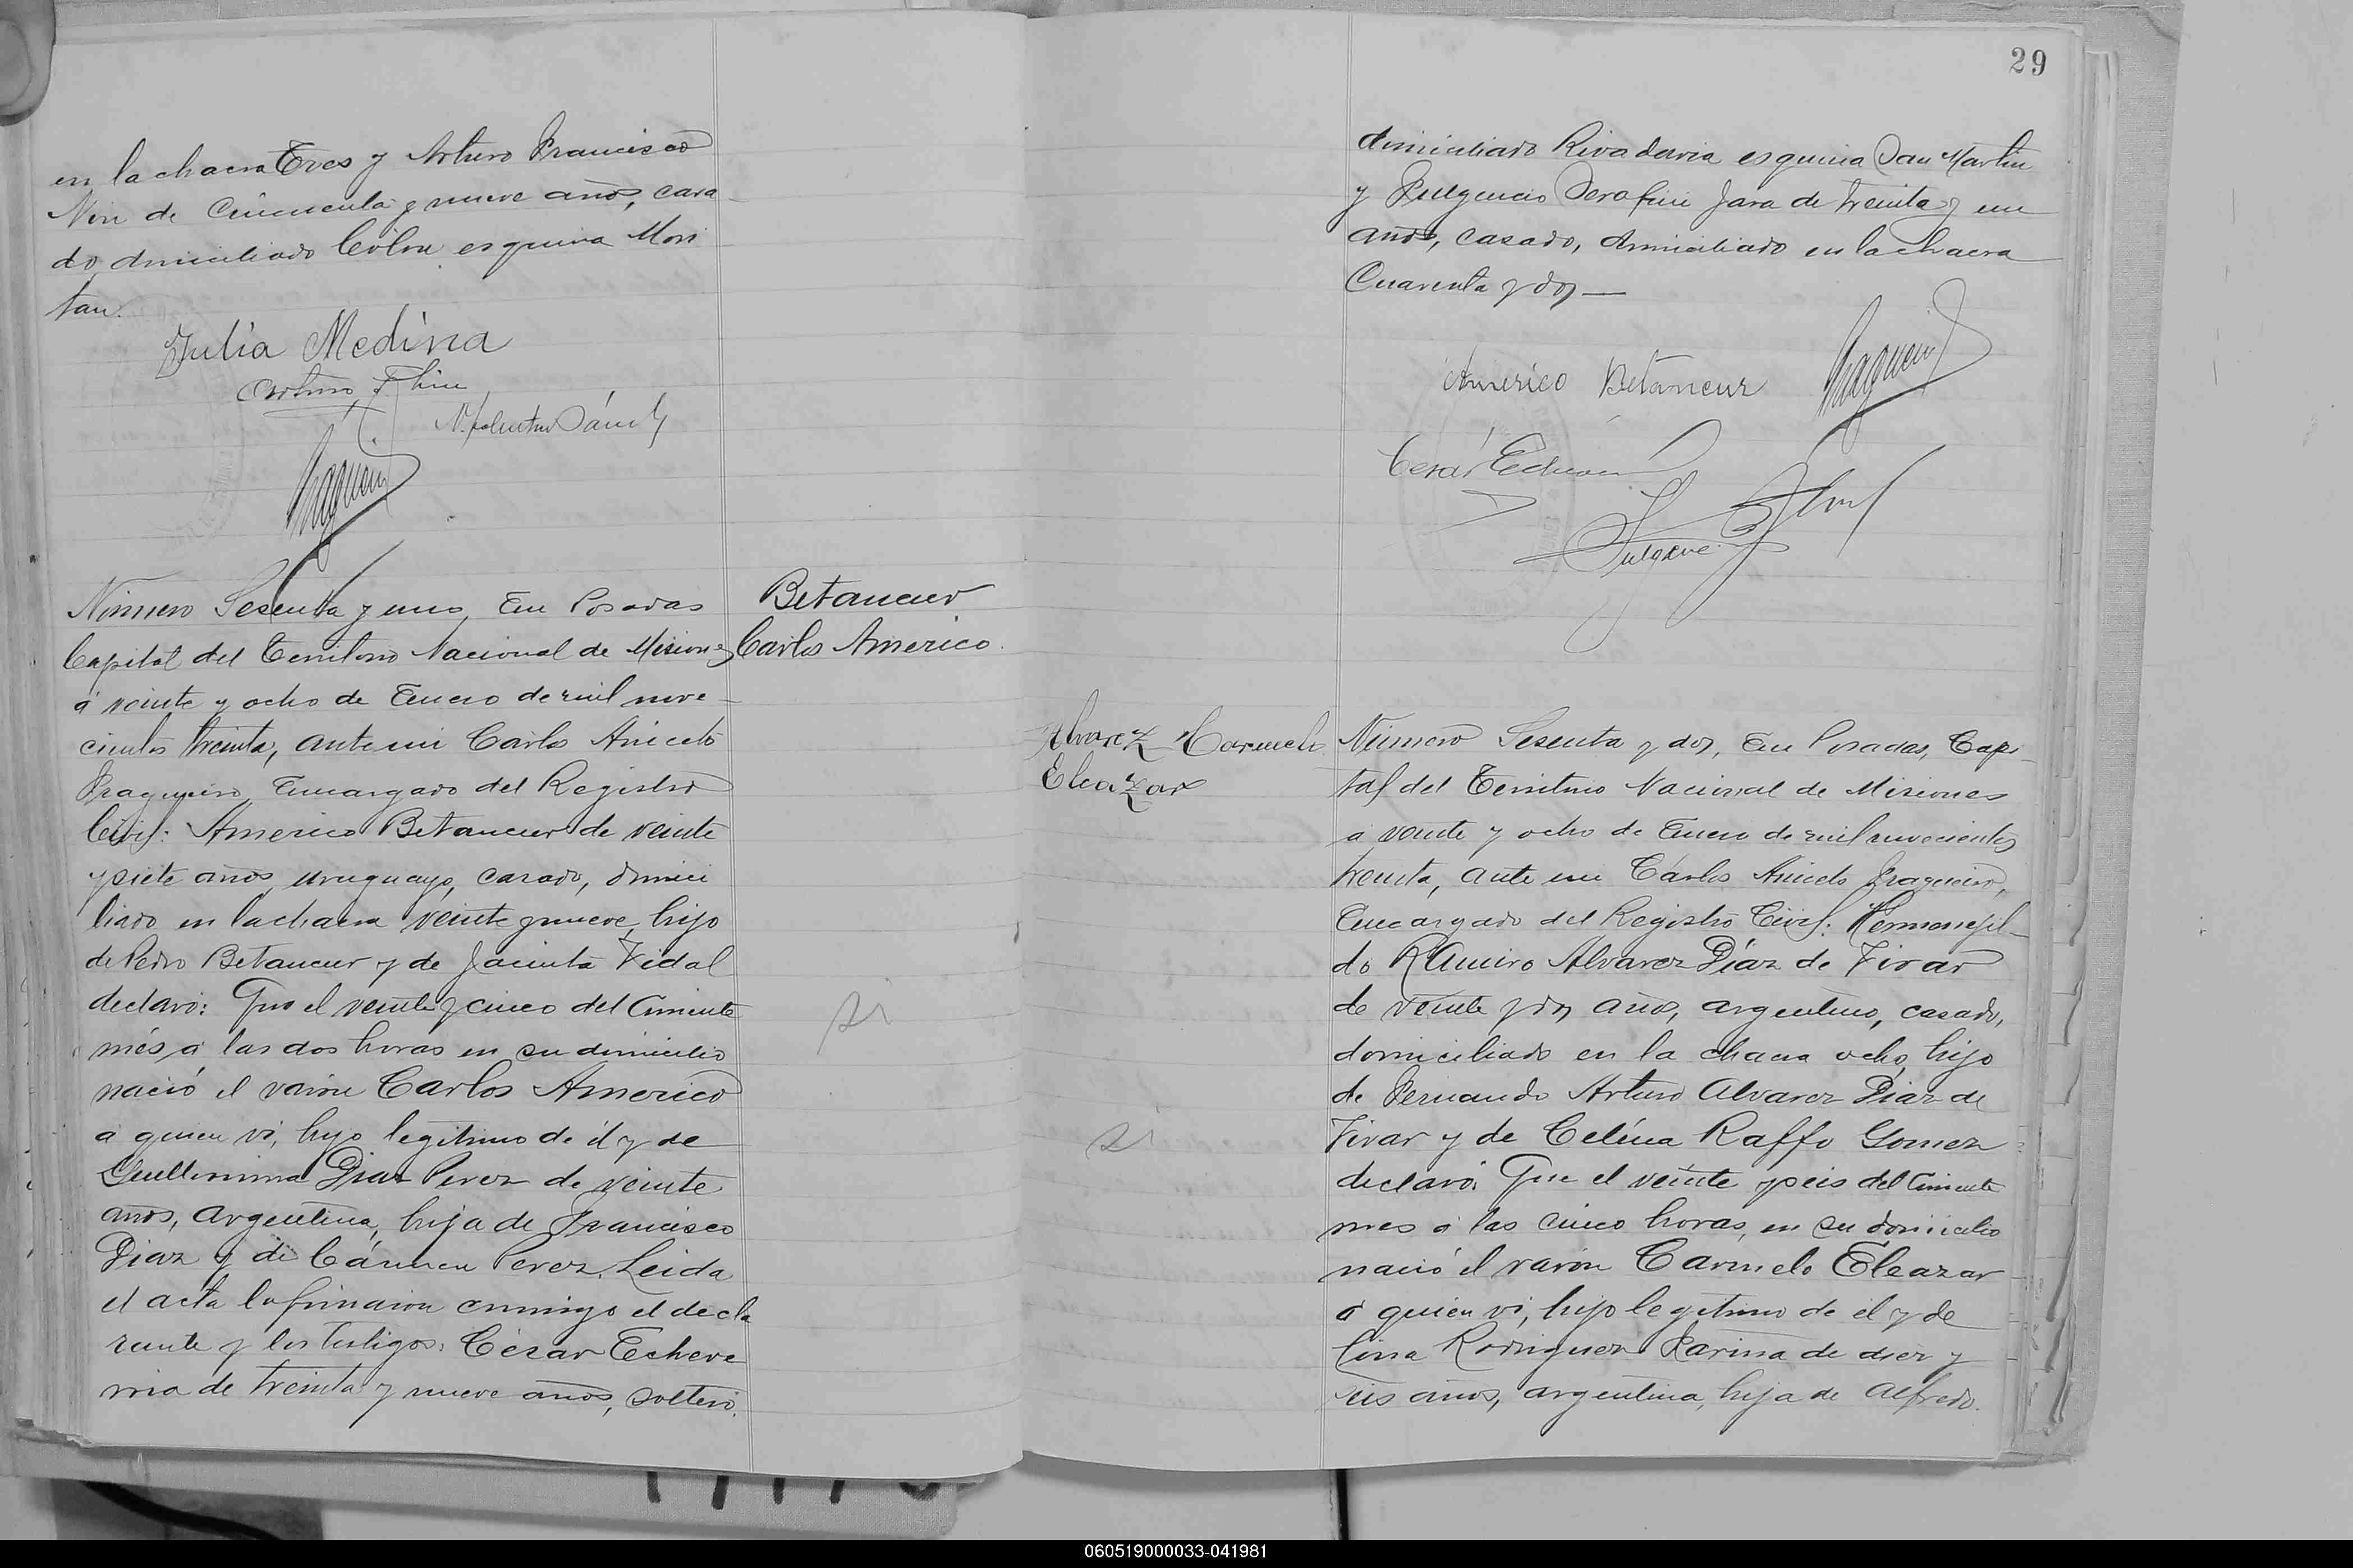 en la chacra Tres y Arturo Francisco
de Cincuenta y nueve años, casa
do, domiciliado Colon esquina Mori
tan.
Julia Medina
Arturo F
Número Sesenta y uno, En Posadas
Capital del Territorio Nacional de Misiones
á veinte y ocho de Enero de mil nove-
cientos treinta, ante mi Carlos Aniceto
Fragueiro, Encargado del Registro
Civil: Americo Betancur de veinte
y siete años, uruguayo, casado, domici
liado en la chacra veinte y nueve, hijo
de Pedro Betancur y de Jacinta Vidal
declaró: Que el veinte y cinco del corriente
més á las dos horas en su domicilio
nació el varon Carlos Americo
a quien vi, hijo legitimo de él y de
Guillermina Diaz Perez de veinte
años, argentina, hija de Francisco
Diaz y de Cármen Perez. Leida
el acta la firmaron conmigo el decla
rante y los testigos: César Echeve
rria de treinta y nueve años, soltero,
Betancur
Carlos Americo.
si
29
domiciliado Rivadavia esquina San Martin
y Fulgencio Serafin Jara de treinta y un
años, casado, domiciliado en la chacra
Cuarenta y dos —
Americo Betancur
César
Alvarez Carmelo
Eleazar
si
Número Sesenta y dos, En Posadas, Capi-
tal del Territorio Nacional de Misiones
á veinte y ocho de Enero de mil novecientos
treinta, ante mi Cárlos Aniceto Fragueiro,
Encargado del Registro Civil: Hermenejil-
do Ramiro Alvarez Díaz de Vivar
de veinte y dos años, argentino, casado,
domiciliado en la chacra ocho, hijo
de Fernando Arturo Alvarez Diaz de
Vivar y de Celina Raffo Gomez
declaró: Que el veinte y seis del corriente
mes á las cinco horas, en su domicilio
nació el varón Carmelo Eleazar
á quien vi, hijo legitimo de él y de
Rodriguez Farina de diez y
seis años, argentina, hija de Alfredo.
060519000033-041981